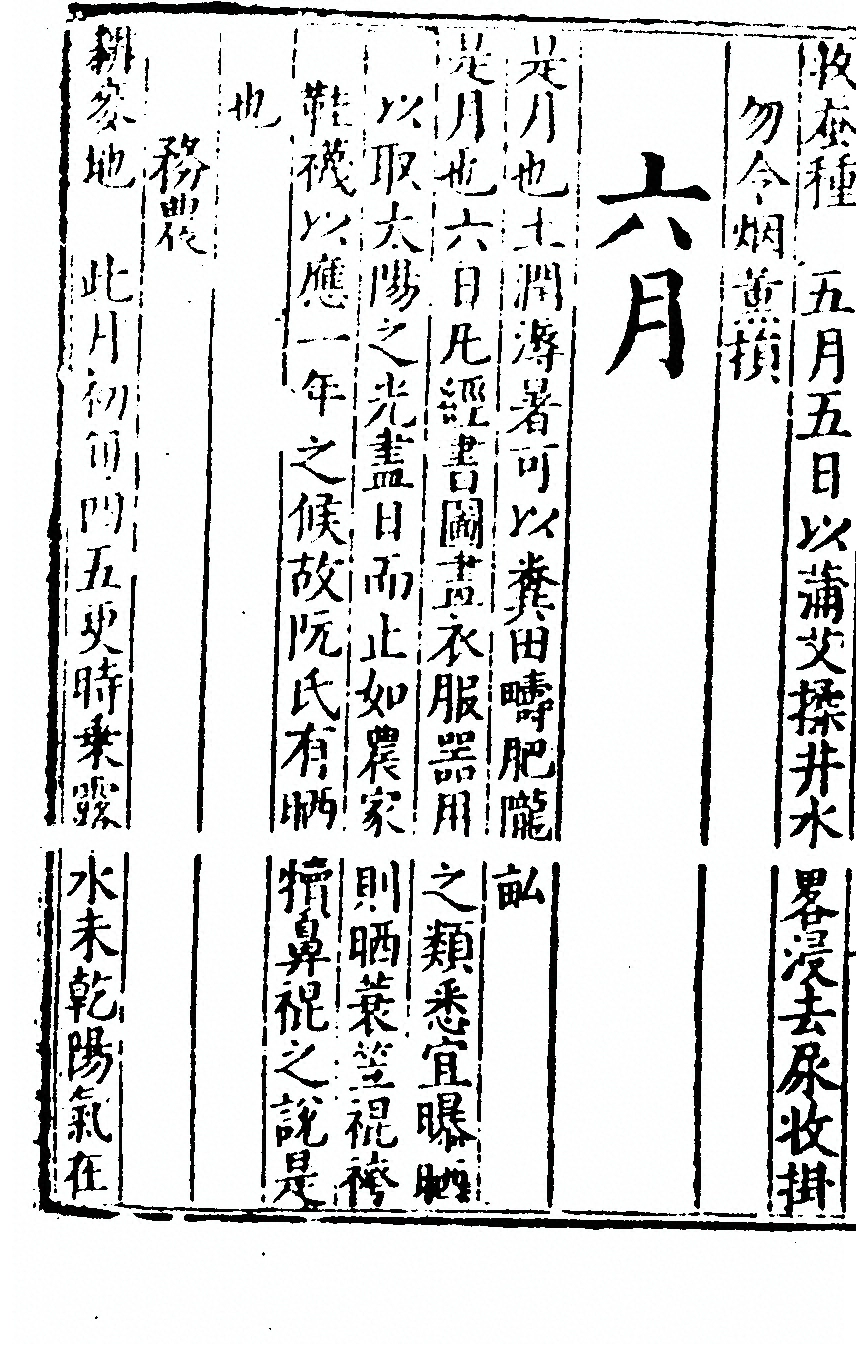 收蚕種　五月五日以蒲艾揉井水畧浸去尿收掛
勿令烟薰損
六月
是月也土潤溽暑可以糞田疇肥隴畆
是月也六日凡經書圖畫衣服器用之類悉宜曝晒
以取太陽之光盡日而止如農家則晒蓑笠裩袴
鞋襪以應一年之候故阮氏有晒犢鼻裩之說是
也
務農
耕麥地　此月初旬四五更時乗露水未乾陽氣在